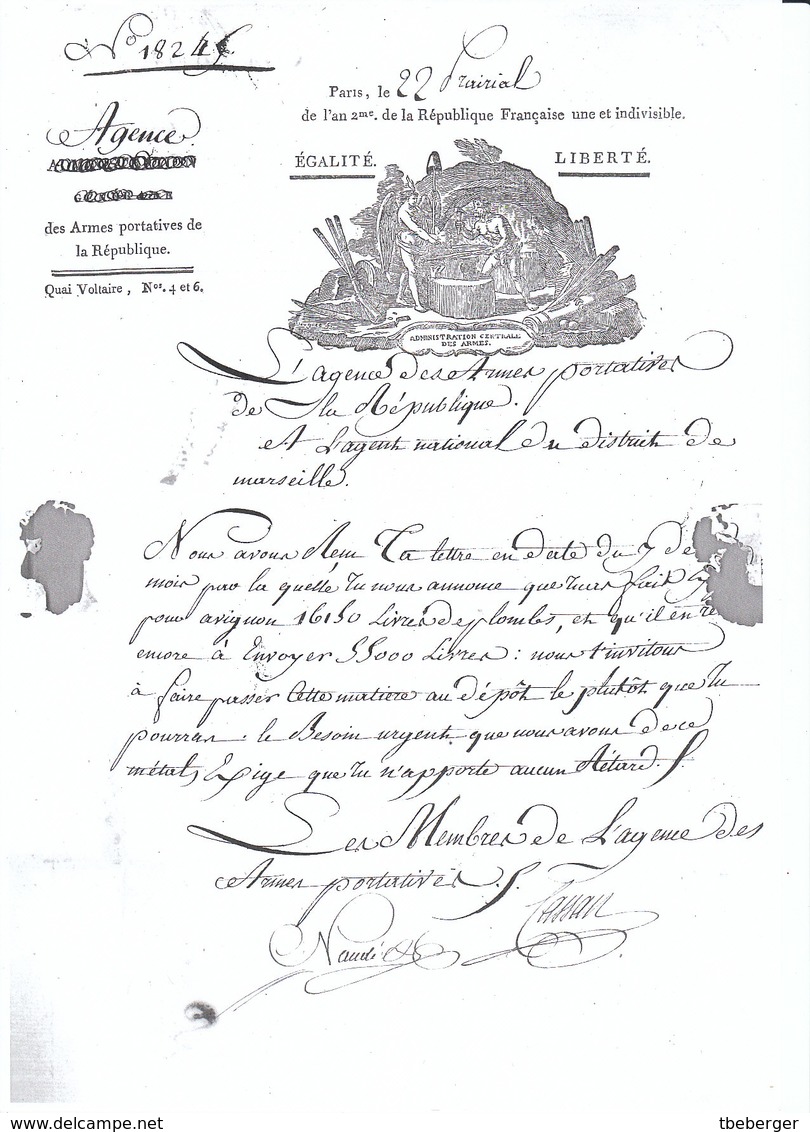 N° 1824
Paris, le 22 Prairial
de l'an 2me. de la République Française une et indivisible.
Agence
des Armes portatives de
la République.
Quai Voltaire, Nos. 4 et 6.
ÉGALITÉ.
LIBERTÉ.
ADMINISTRATION CENTRALE
DES ARMES.
L'agence des Armes portatives
de la République.
A L'agent national du district de
marseille.
Nous avons Reçu Ta lettre en date du 7 de
mois par la quelle tu nous annonce que tu as fait
pour avignon 16150 Livres de plombs, et qu'il en re
encore à Envoyer 55000 Livres : nous t'invitons
à faire passer Cette matiere au dépôt le plutôt que tu
pourras. le Besoin urgent que nous avons de ce
métal, Exige que tu n'apporte aucun Rétard.
Les Membres de L'agence des
Armes portatives
Naudé
tbeberger